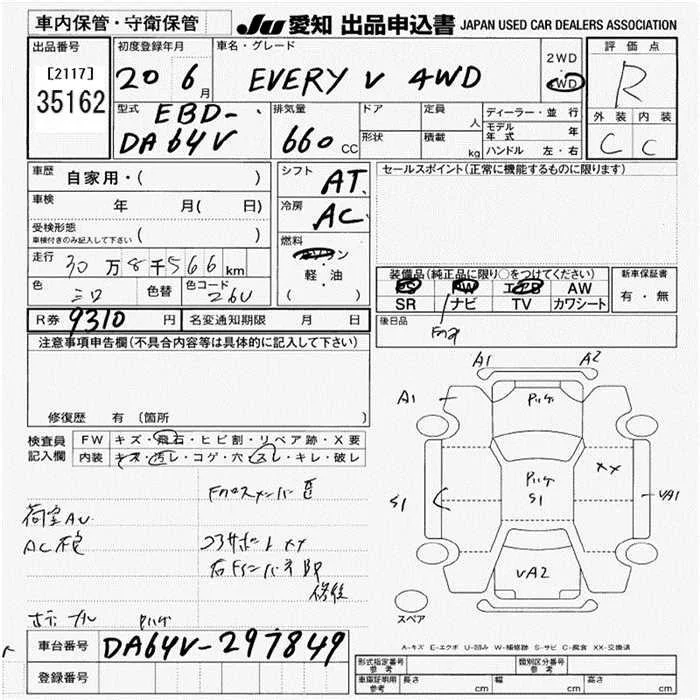 車内保管・守衛保管
JU 愛知 出品申込書 JAPAN USED CAR DEALERS ASSOCIATION
出品番号
[2117]
35162
初度登録年月
20 6月
車名・グレード
EVERY V 4WD
2WD
・
4WD
評価点
R
外装 内装
C C
型式
EBD-
DA64V
排気量
660 CC
ドア
形状
定員 人
積載 kg
ディーラー・並行
モデル年式 年
ハンドル 左・右
車歴 自家用・( )
車検 年 月( 日)
受検形態
車検付きのみ記入して下さい ( )
走行 30万8千566km
色 色替 色コード
26U
シフト AT
冷房 AC
燃料
ガソリン
軽・油
( ・ )
セールスポイント(正常に機能するものに限ります)
装備品(純正品に限り〇をつけてください)
PS PW エアB AW
SR ナビ TV カワシート
新車保証書
有・無
後日品
R券 9310 円 名変通知期限 月 日
注意事項申告欄(不具合内容等は具体的に記入して下さい)
修復歴 有 (箇所 )
検査員記入欄
FW キズ・飛石・ヒビ割・リペア跡・X要
内装 キズ・汚レ・コゲ・穴・スレ・キレ・破レ
荷室AU
AC不良
コアサポートXX
A1 A2
A1
S1
S1
XX
VA1
VA2
スペア
A-キズ E-エクボ U-凹み W-補修跡 S-サビ C-腐食 XX-交換済
車台番号 DA64V-297849
登録番号
形式指定番号 参考 類別区分番号 参考
車庫証明用 参考 長さ cm 幅 cm 高さ cm